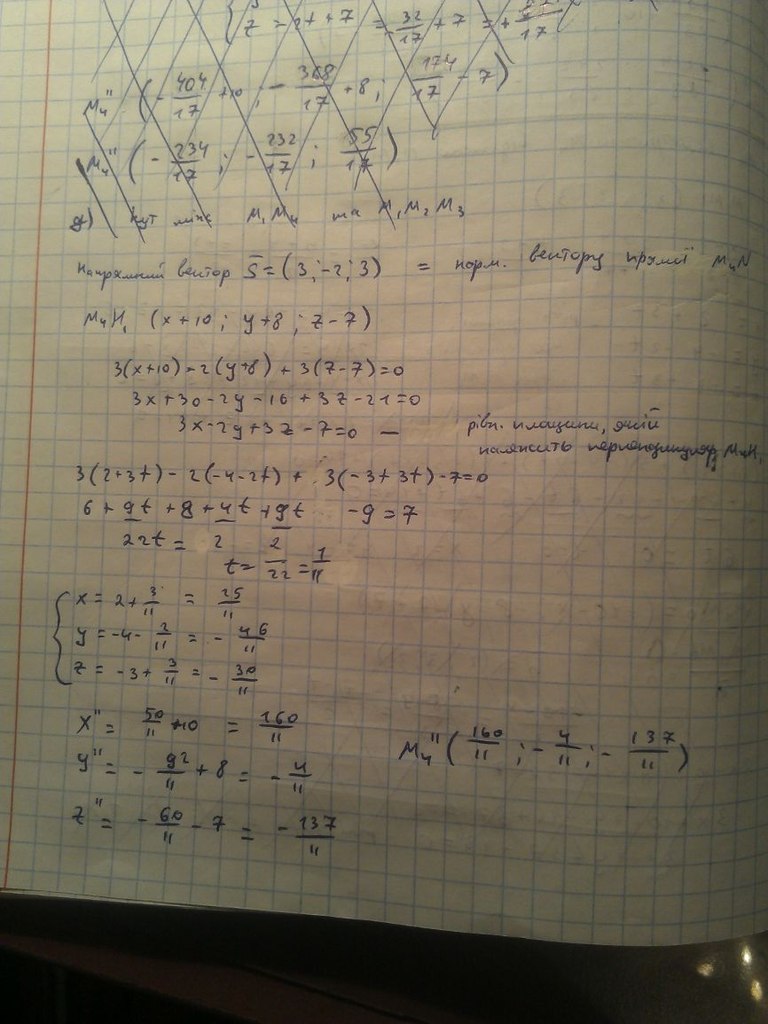 z = 2t + 7 = -32/17 + 7 =
M₄'' (-404/17 + 10 ; -368/17 + 8 ; 174/17 - 7)
M₄'' (-234/17 ; -232/17 ; 55/17)
кут між M₁M₄ та M₁M₂M₃
Напрямний вектор S̄ = (3; -2; 3) = норм. вектору прямої M₄N
M₄H₁ (x+10 ; y+8 ; z-7)
3(x+10) - 2(y+8) + 3(z-7) = 0
3x + 30 - 2y - 16 + 3z - 21 = 0
3x - 2y + 3z - 7 = 0 — рівн. площини, якій
належить перпендикуляр M₄H₁
3(2+3t) - 2(-4-2t) + 3(-3+3t) - 7 = 0
6 + 9t + 8 + 4t + 9t - 9 = 7
22t = 2
t = 2/22 = 1/11
x = 2 + 3/11 = 25/11
y = -4 - 2/11 = -46/11
z = -3 + 3/11 = -30/11
x'' = 50/11 + 10 = 160/11
M₄'' (160/11 ; -4/11 ; -137/11)
y'' = -92/11 + 8 = -4/11
z'' = -60/11 - 7 = -137/11